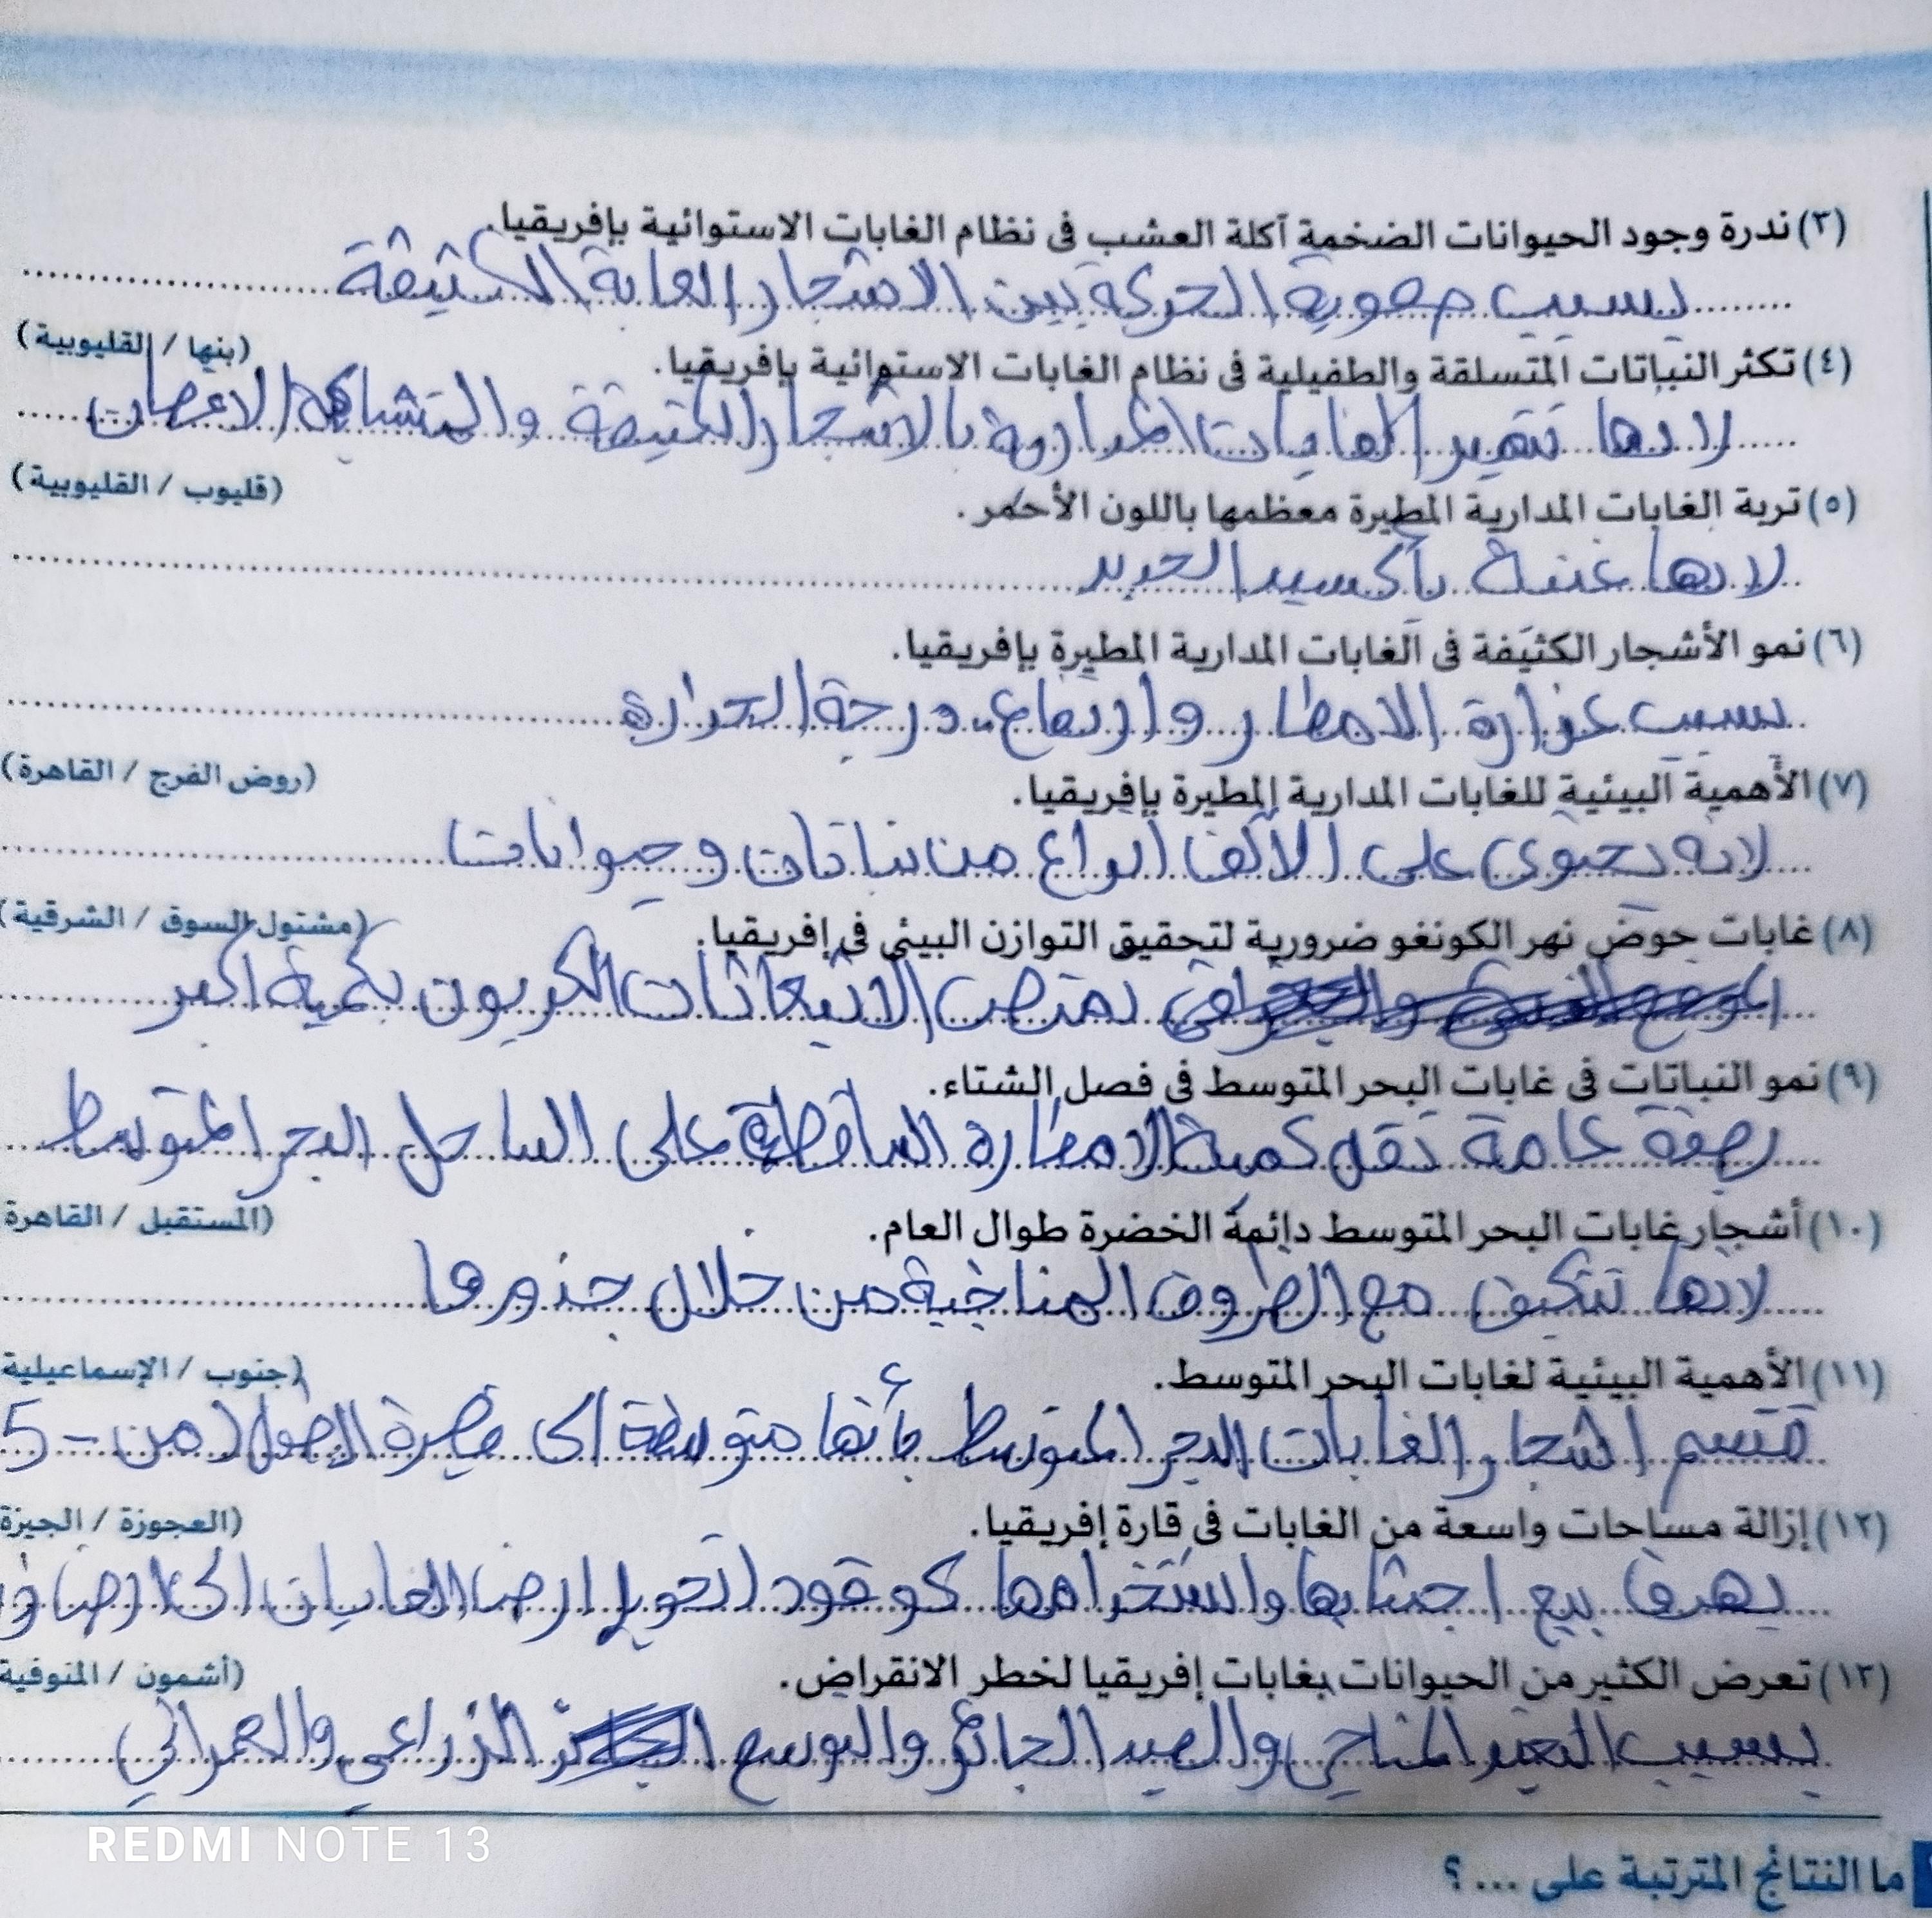 (٣) ندرة وجود الحيوانات الضخمة آكلة العشب فى نظام الغابات الاستوائية بإفريقيا.
بسبب صعوبة الحركة بين الاشجار الغابة الكثيفة
(بنها / القليوبية)
(٤) تكثر النباتات المتسلقة والطفيلية فى نظام الغابات الاستوائية بإفريقيا.
لانها تتميز الغابات المدارية بالاشجار الكثيفة والمتشابكه الاغصان
(قليوب / القليوبية)
(٥) تربة الغابات المدارية المطيرة معظمها باللون الأحمر.
لانها غنية بأكسيد الحديد
(٦) نمو الأشجار الكثيفة فى الغابات المدارية المطيرة بإفريقيا.
بسبب غزارة الامطار وارتفاع درجة الحرارة
(روض الفرج / القاهرة)
(٧) الأهمية البيئية للغابات المدارية المطيرة بإفريقيا.
لانه تحتوي على الألف انواع من نباتات وحيوانات
(مشتول السوق / الشرقية)
(٨) غابات حوض نهر الكونغو ضرورية لتحقيق التوازن البيئى فى إفريقيا.
تمتص الانبعاثات الكربون بكمية اكبر
(٩) نمو النباتات فى غابات البحر المتوسط فى فصل الشتاء.
بصفة عامة تقل كمية الامطاره الساقطة على الساحل البحر المتوسط
(المستقبل / القاهرة
(١٠) أشجار غابات البحر المتوسط دائمة الخضرة طوال العام.
لانها تتكيف مع الظروف المناخية من خلال جذورها
(جنوب / الإسماعيلية
(١١) الأهمية البيئية لغابات البحر المتوسط.
اشجار الغابات البحر المتوسط بأنها متوسطة الى قصيرة الطول (من - 5
(العجوزة / الجيزة
(١٢) إزالة مساحات واسعة من الغابات فى قارة إفريقيا.
بهدف بيع اخشابها واستخدامها كوقود (تحويل ارض الغابات الى
(أشمون / المنوفية
(١٣) تعرض الكثير من الحيوانات بغابات إفريقيا لخطر الانقراض.
بسبب التغير المناخي والصيد الجائر والتوسع الزراعي والعمراني
REDMI NOTE 13
ما النتائج المترتبة على ... ؟